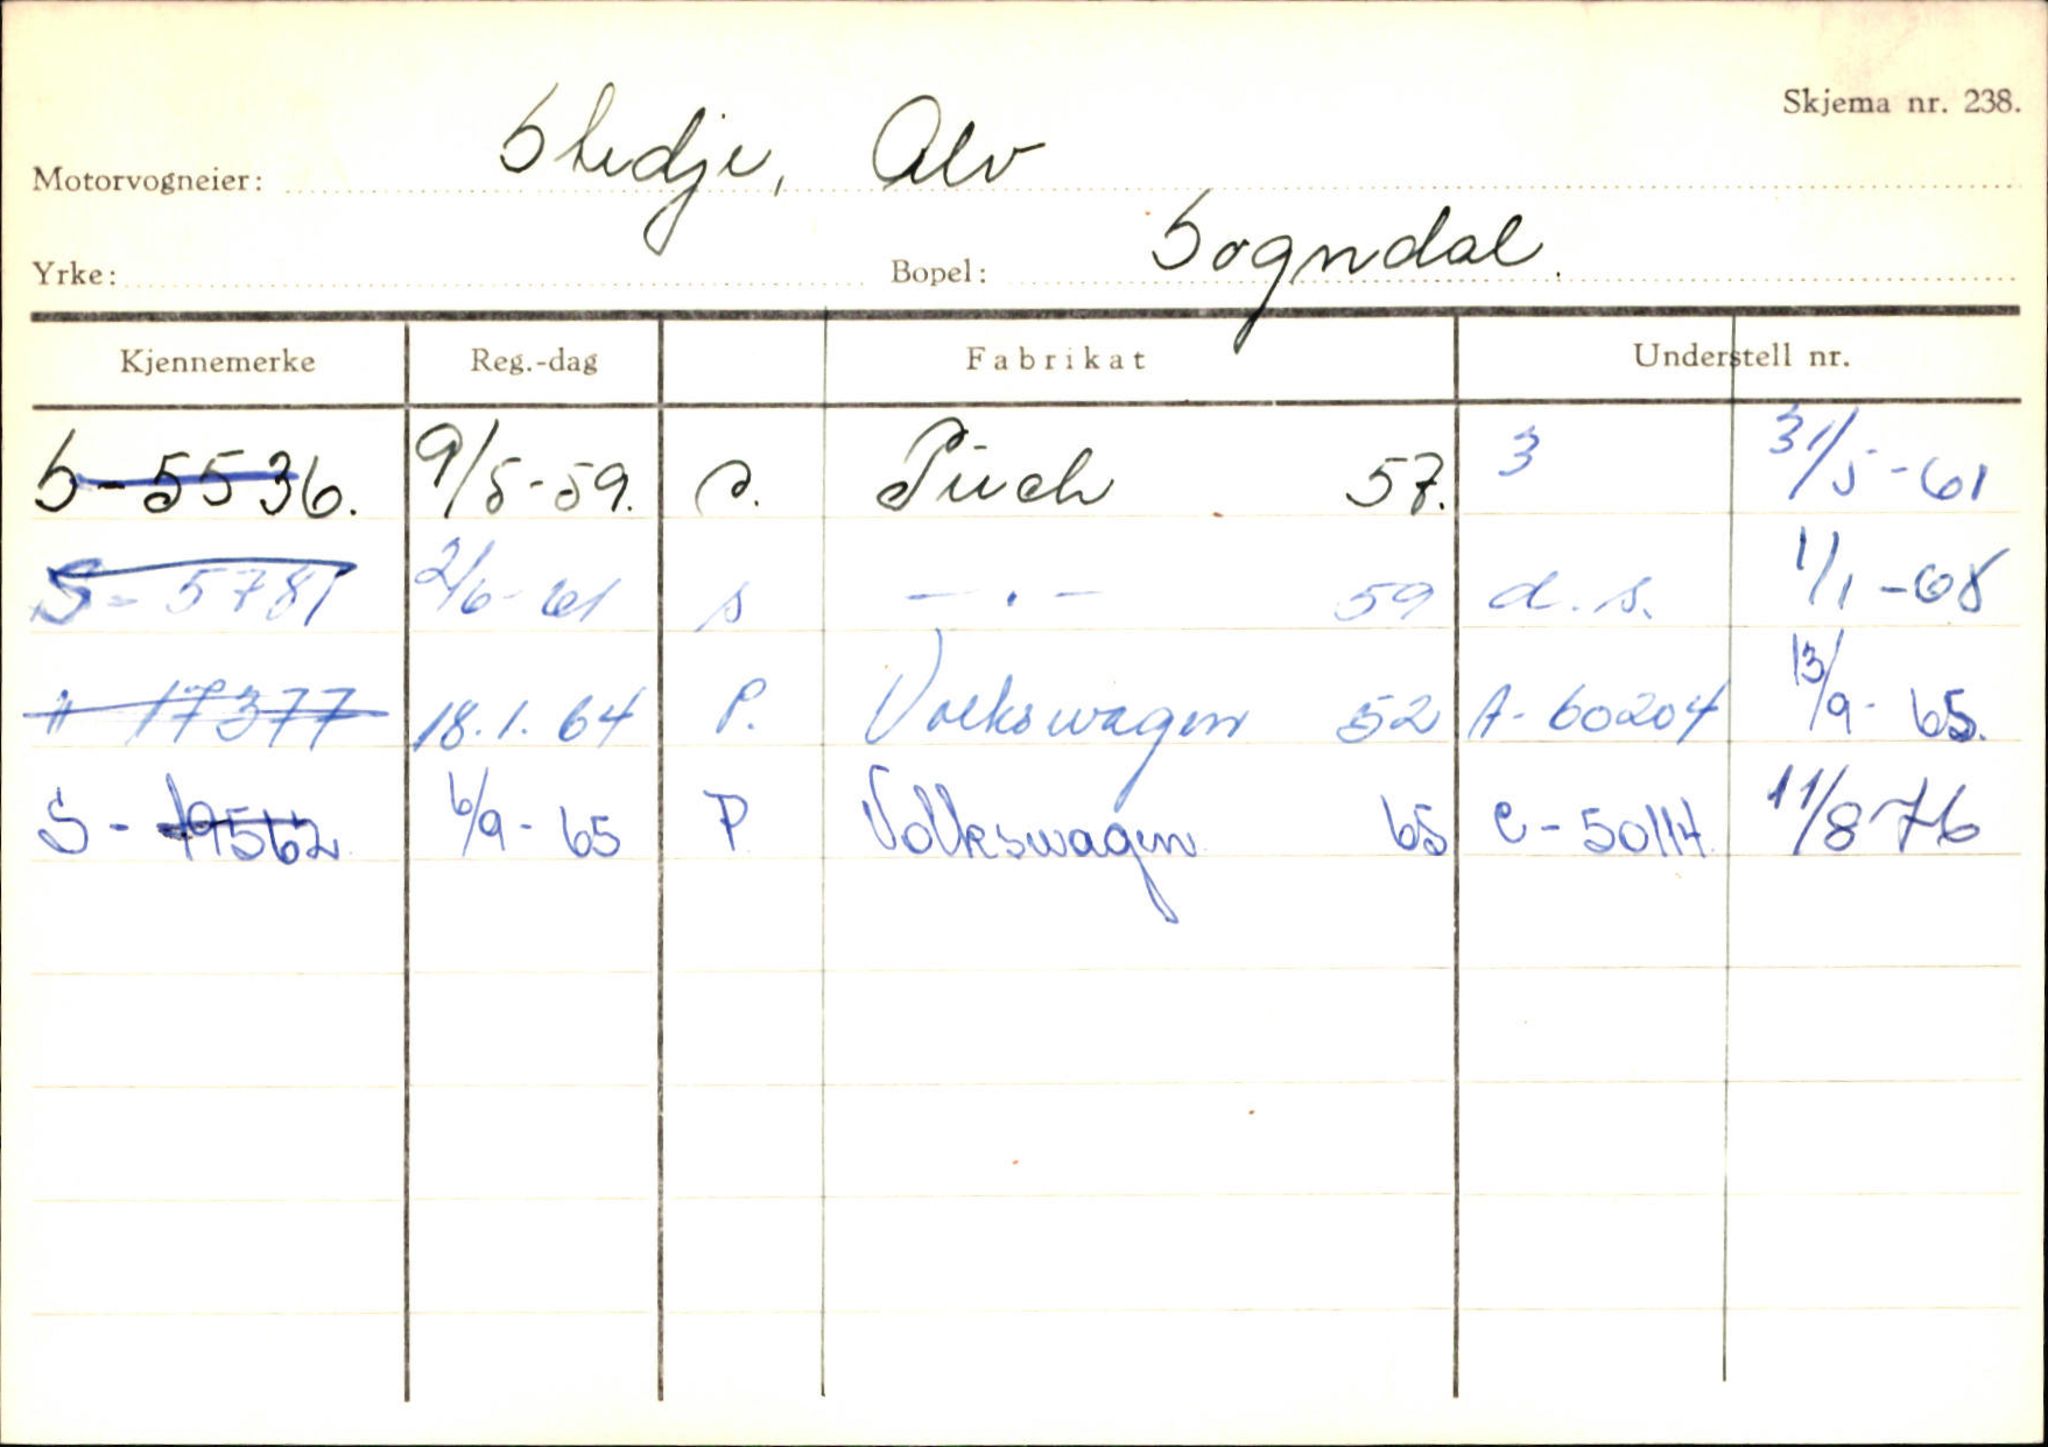 Skjema nr. 238.
Motorvogneier: Stedje, Alv
Yrke: Bopel: Sogndal.
Kjennemerke Reg.-dag Fabrikat Understell nr.
S-5536. 9/5-59. s. Puch 57. 3 31/5-61
S-5781 2/6-61 s —.— 59 d.s. 1/1-68
" 17377 18.1.64 P. Volkswagen 52 A-60204 13/9-65.
S-19562 6/9-65 P Volkswagen 65 C-50114. 11/8 76